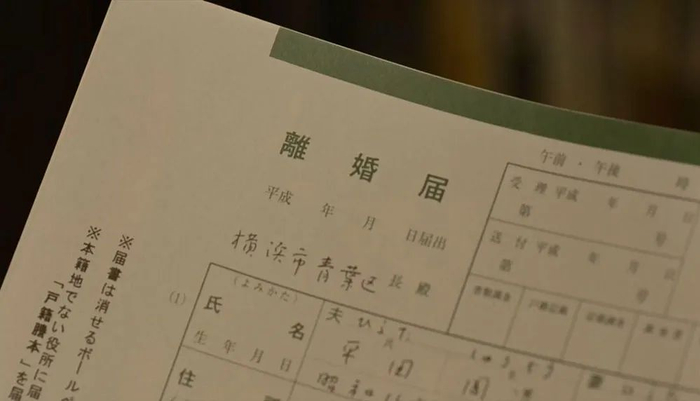 離婚届
平成　年　月　日届出
横浜市青葉区長 殿
午前・午後　時
受理 平成　年　月　日
第　号
送付 平成　年　月　日
第　号
書類調査 戸籍記載 記載調査
(1)
(よみかた)
氏名
夫 ひらた
平田
生年月日
昭和
住
※届書は消せるボールペ
※本籍地でない役所に届
「戸籍謄本」を届